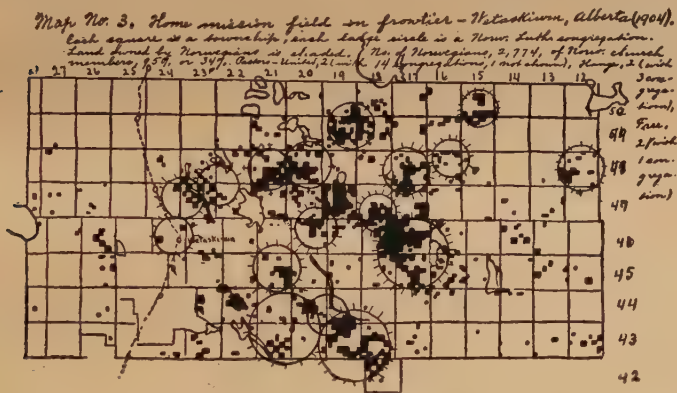 Map No. 3. Home mission field on frontier – Wetaskiwin, Alberta (1904).
Each square is a township, each large circle is a Norw. Luth. congregation.
Land owned by Norwegians is shaded. No. of Norwegians, 2,774, of Norw. church
members, 959, or 34%. Pastors – United, 2 (with 14 congregations, 1 not shown), Hauge, 2 (with
3 con-
grega-
tions),
Free,
2 (with
1 con-
grega-
tion)
27 26 25 24 23 22 21 20 19 18 17 16 15 14 13 12
50
49
48
47
46
45
44
43
42
Wetaskiwin